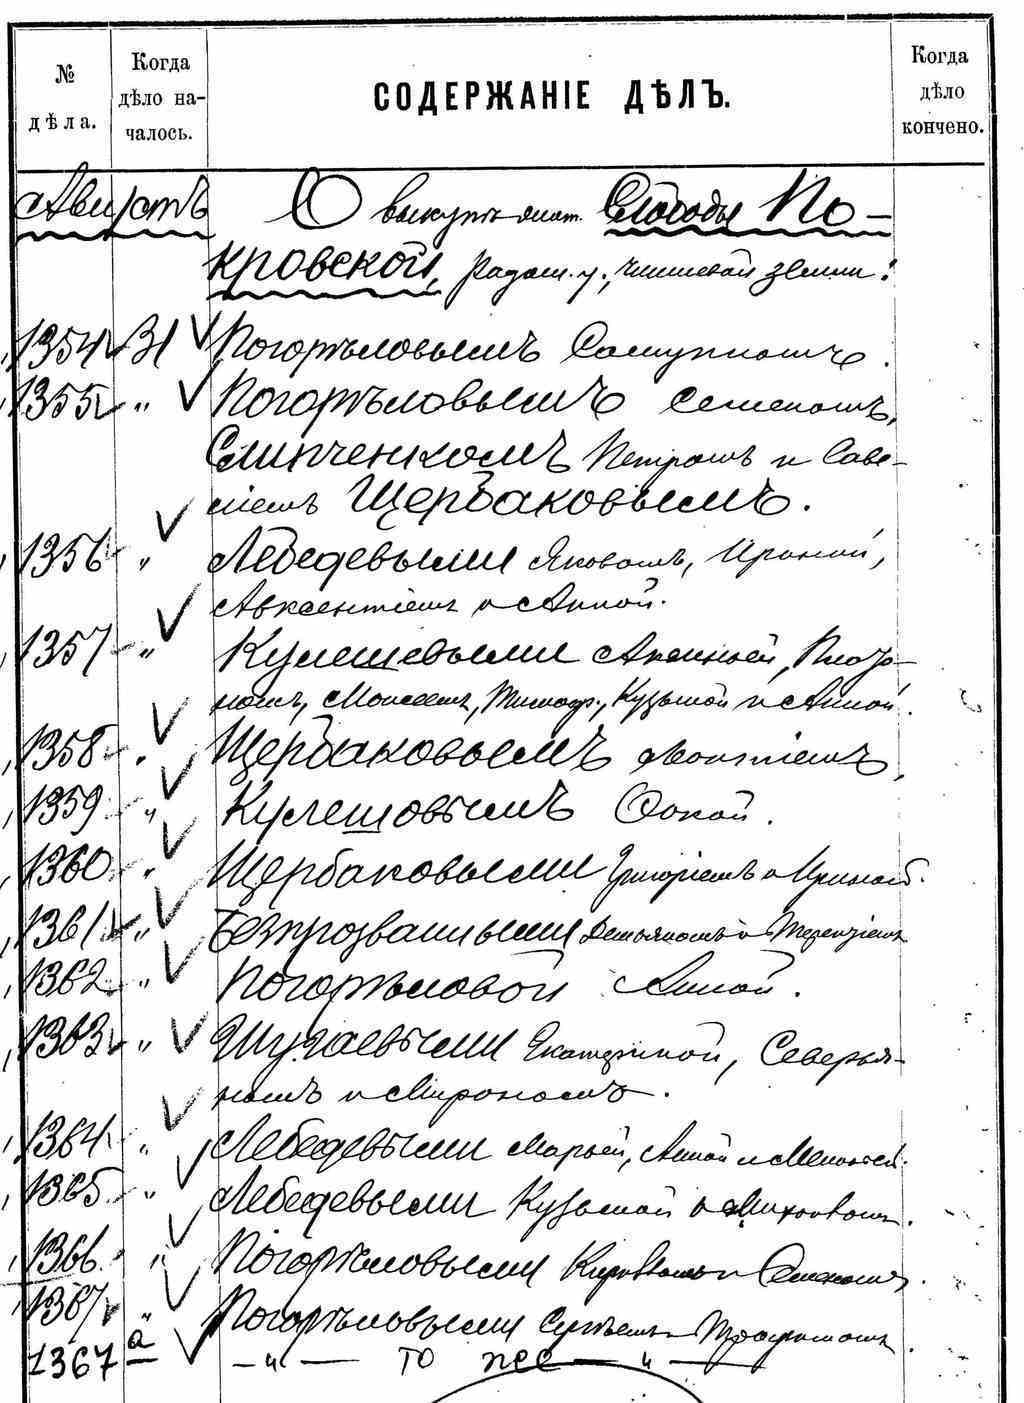 № дѣла.
Когда дѣло началось.
СОДЕРЖАНІЕ ДѢЛЪ.
Когда дѣло кончено.
Августъ О выкупѣ Слободы По-
кровской, Радом. у., чиншевой земли:
1354 31 Погорѣловымъ
1355 " Погорѣловымъ Семеномъ,
Слипченкомъ Петромъ и Саве-
ліемъ Щербаковымъ.
1356 " Лебедевыми Яковомъ, Ириной,
Авксентіемъ и Анной.
1357 " Кулешевыми Плато-
номъ, Моисеемъ, Тимоф., Кузьмой и Анной.
1358 " Щербаковымъ
1359 " Кулешовымъ Фокой.
1360 " Щербаковыми Григоріемъ и Ириной.
1361 " Безпрозванными Демьяномъ и Терентіемъ
1362 " Погорѣловой Анной.
1363 " Шугаевыми Екатериной, Северья-
номъ и Мирономъ.
1364 " Лебедевыми Марьей, Анной и
1365 " Лебедевыми Кузьмой и
1366 " Погорѣловыми и
1367 " Погорѣловыми Сергѣемъ и Трофимомъ
1367 а — " — то же — " —